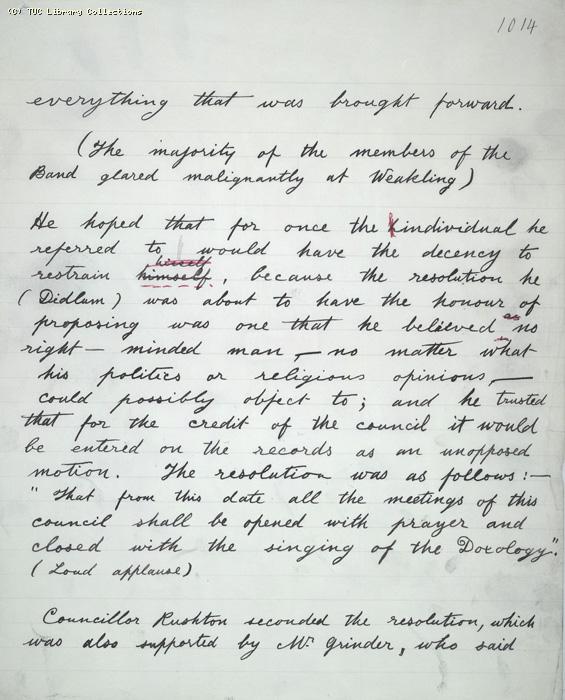 (C) TUC Library Collections
1014
everything that was brought forward.
(The majority of the members of the
Band glared malignantly at Weakling)
He hoped that for once the individual he
referred to would have the decency to
restrain himself, because the resolution he
(Didlum) was about to have the honour of
proposing was one that he believed no
right-minded man, — no matter what
his politics or religious opinions, —
could possibly object to; and he trusted
that for the credit of the council it would
be entered on the records as an unopposed
motion. The resolution was as follows: —
"That from this date all the meetings of this
council shall be opened with prayer and
closed with the singing of the Doxology".
(Loud applause)
Councillor Rushton seconded the resolution, which
was also supported by Mr Grinder, who said